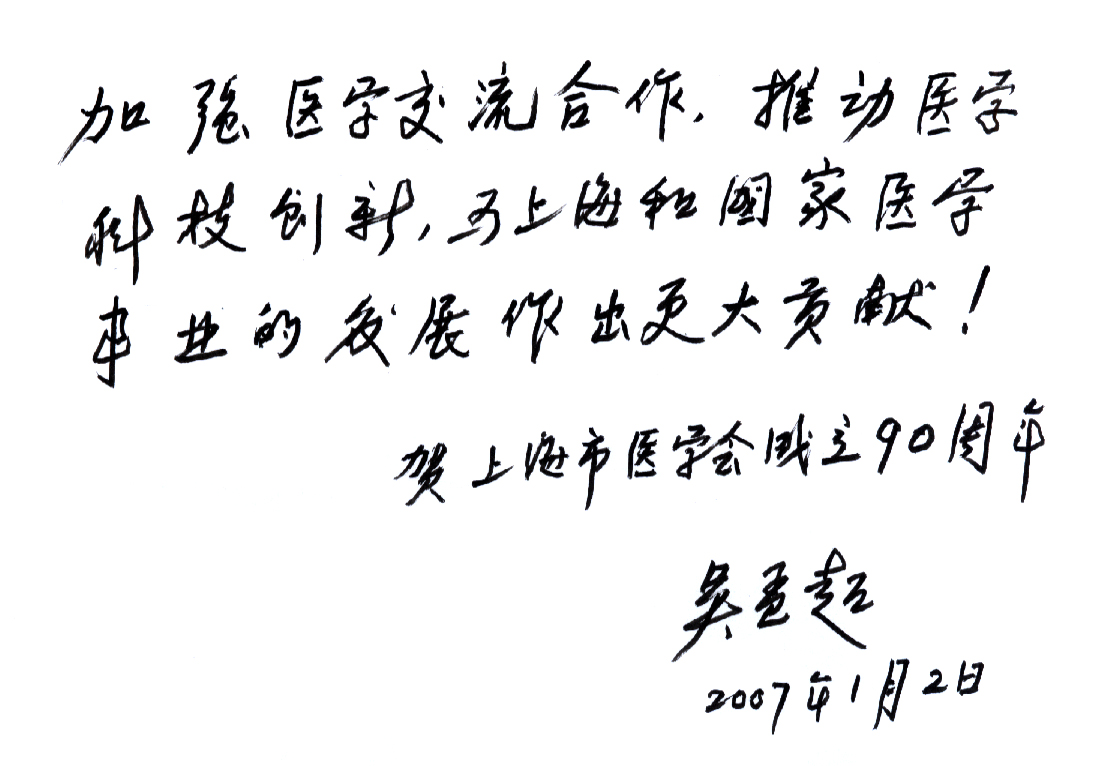 加强医学交流合作，推动医学
科技创新，为上海和国家医学
事业的发展作出更大贡献！
贺上海市医学会成立90周年
吴孟超
2007年1月2日